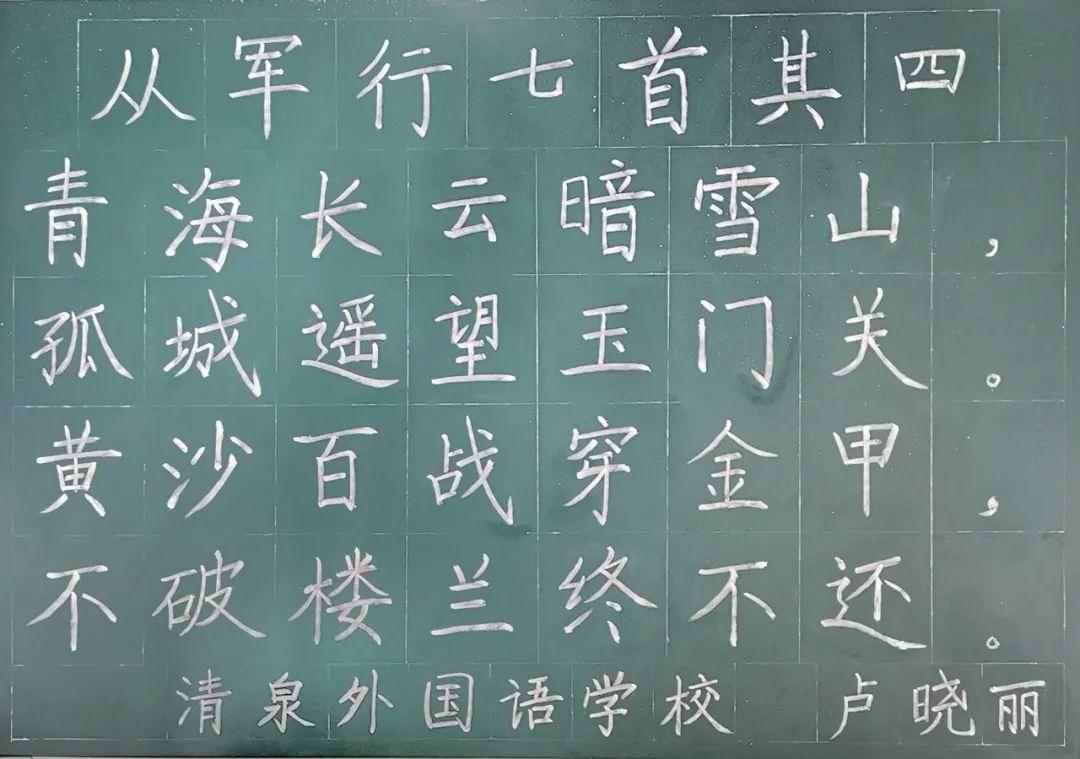 从军行七首其四
青海长云暗雪山，
孤城遥望玉门关。
黄沙百战穿金甲，
不破楼兰终不还。
清泉外国语学校 卢晓丽